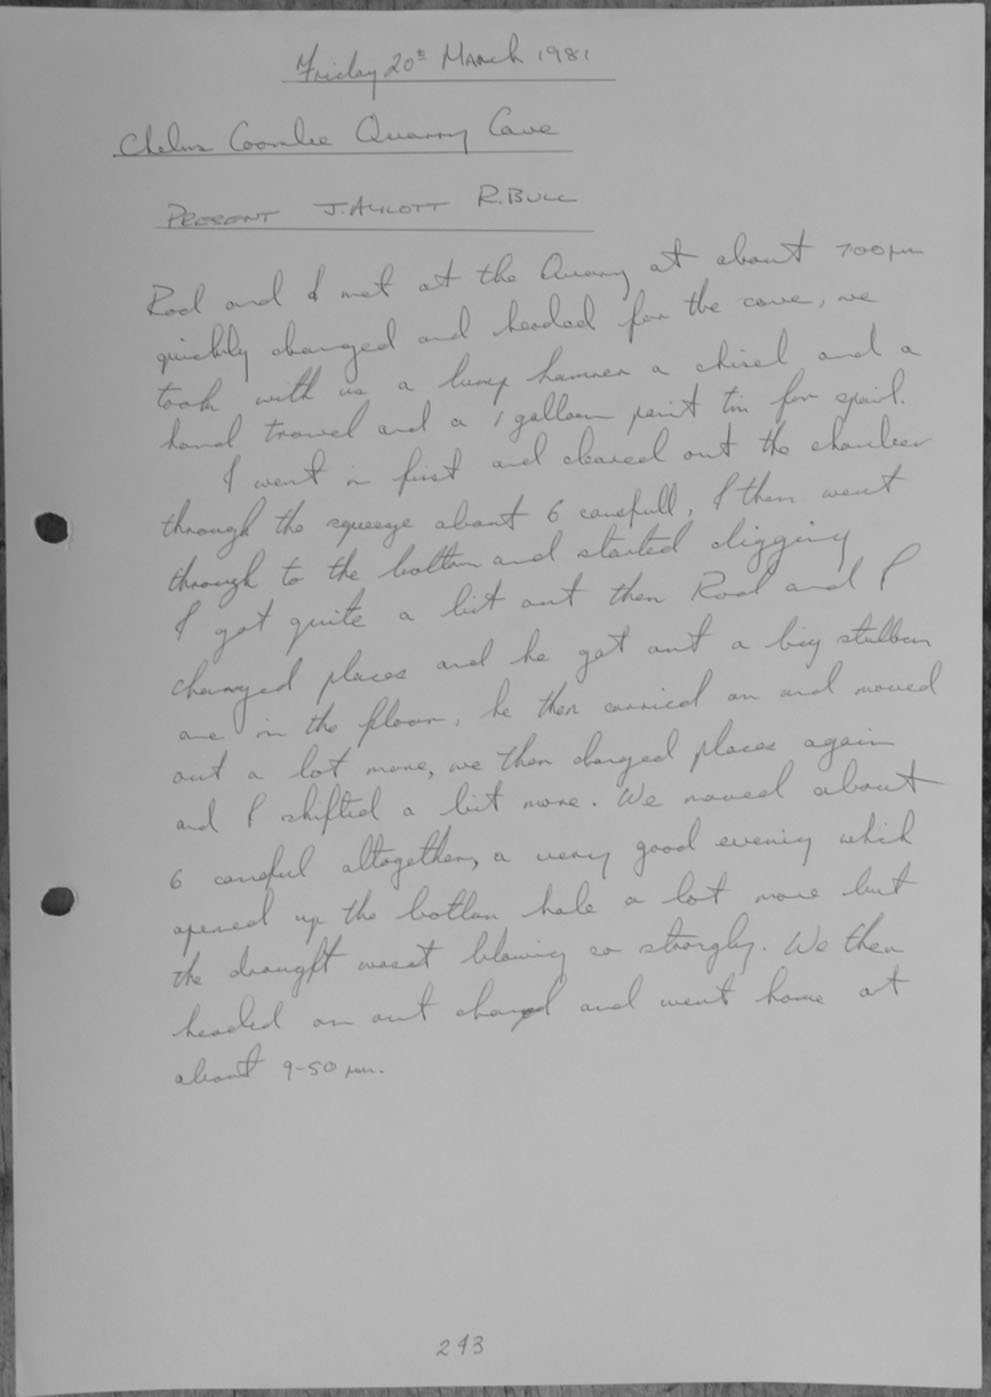 Friday 20th March 1981
Chelms Coombe Quarry Cave
PRESENT J. AYLOTT R. BULL
Rod and I met at the Quarry at about 7·00pm
quickly changed and headed for the cave, we
took with us a lump hammer a chisel and a
hand trowel and a 1 gallon paint tin for spoil.
I went in first and cleared out the chamber
through the squeeze about 6 canefull, I then went
through to the bottom and started digging
I got quite a bit out then Rod and I
changed places and he got out a big stubborn
one in the floor, he then carried on and moved
out a lot more, we then changed places again
and I shifted a bit more. We moved about
6 canefull altogether, a very good evening which
opened up the bottom hole a lot more but
the draught wasnt blowing so strongly. We then
headed on out changed and went home at
about 9-50 pm.
243